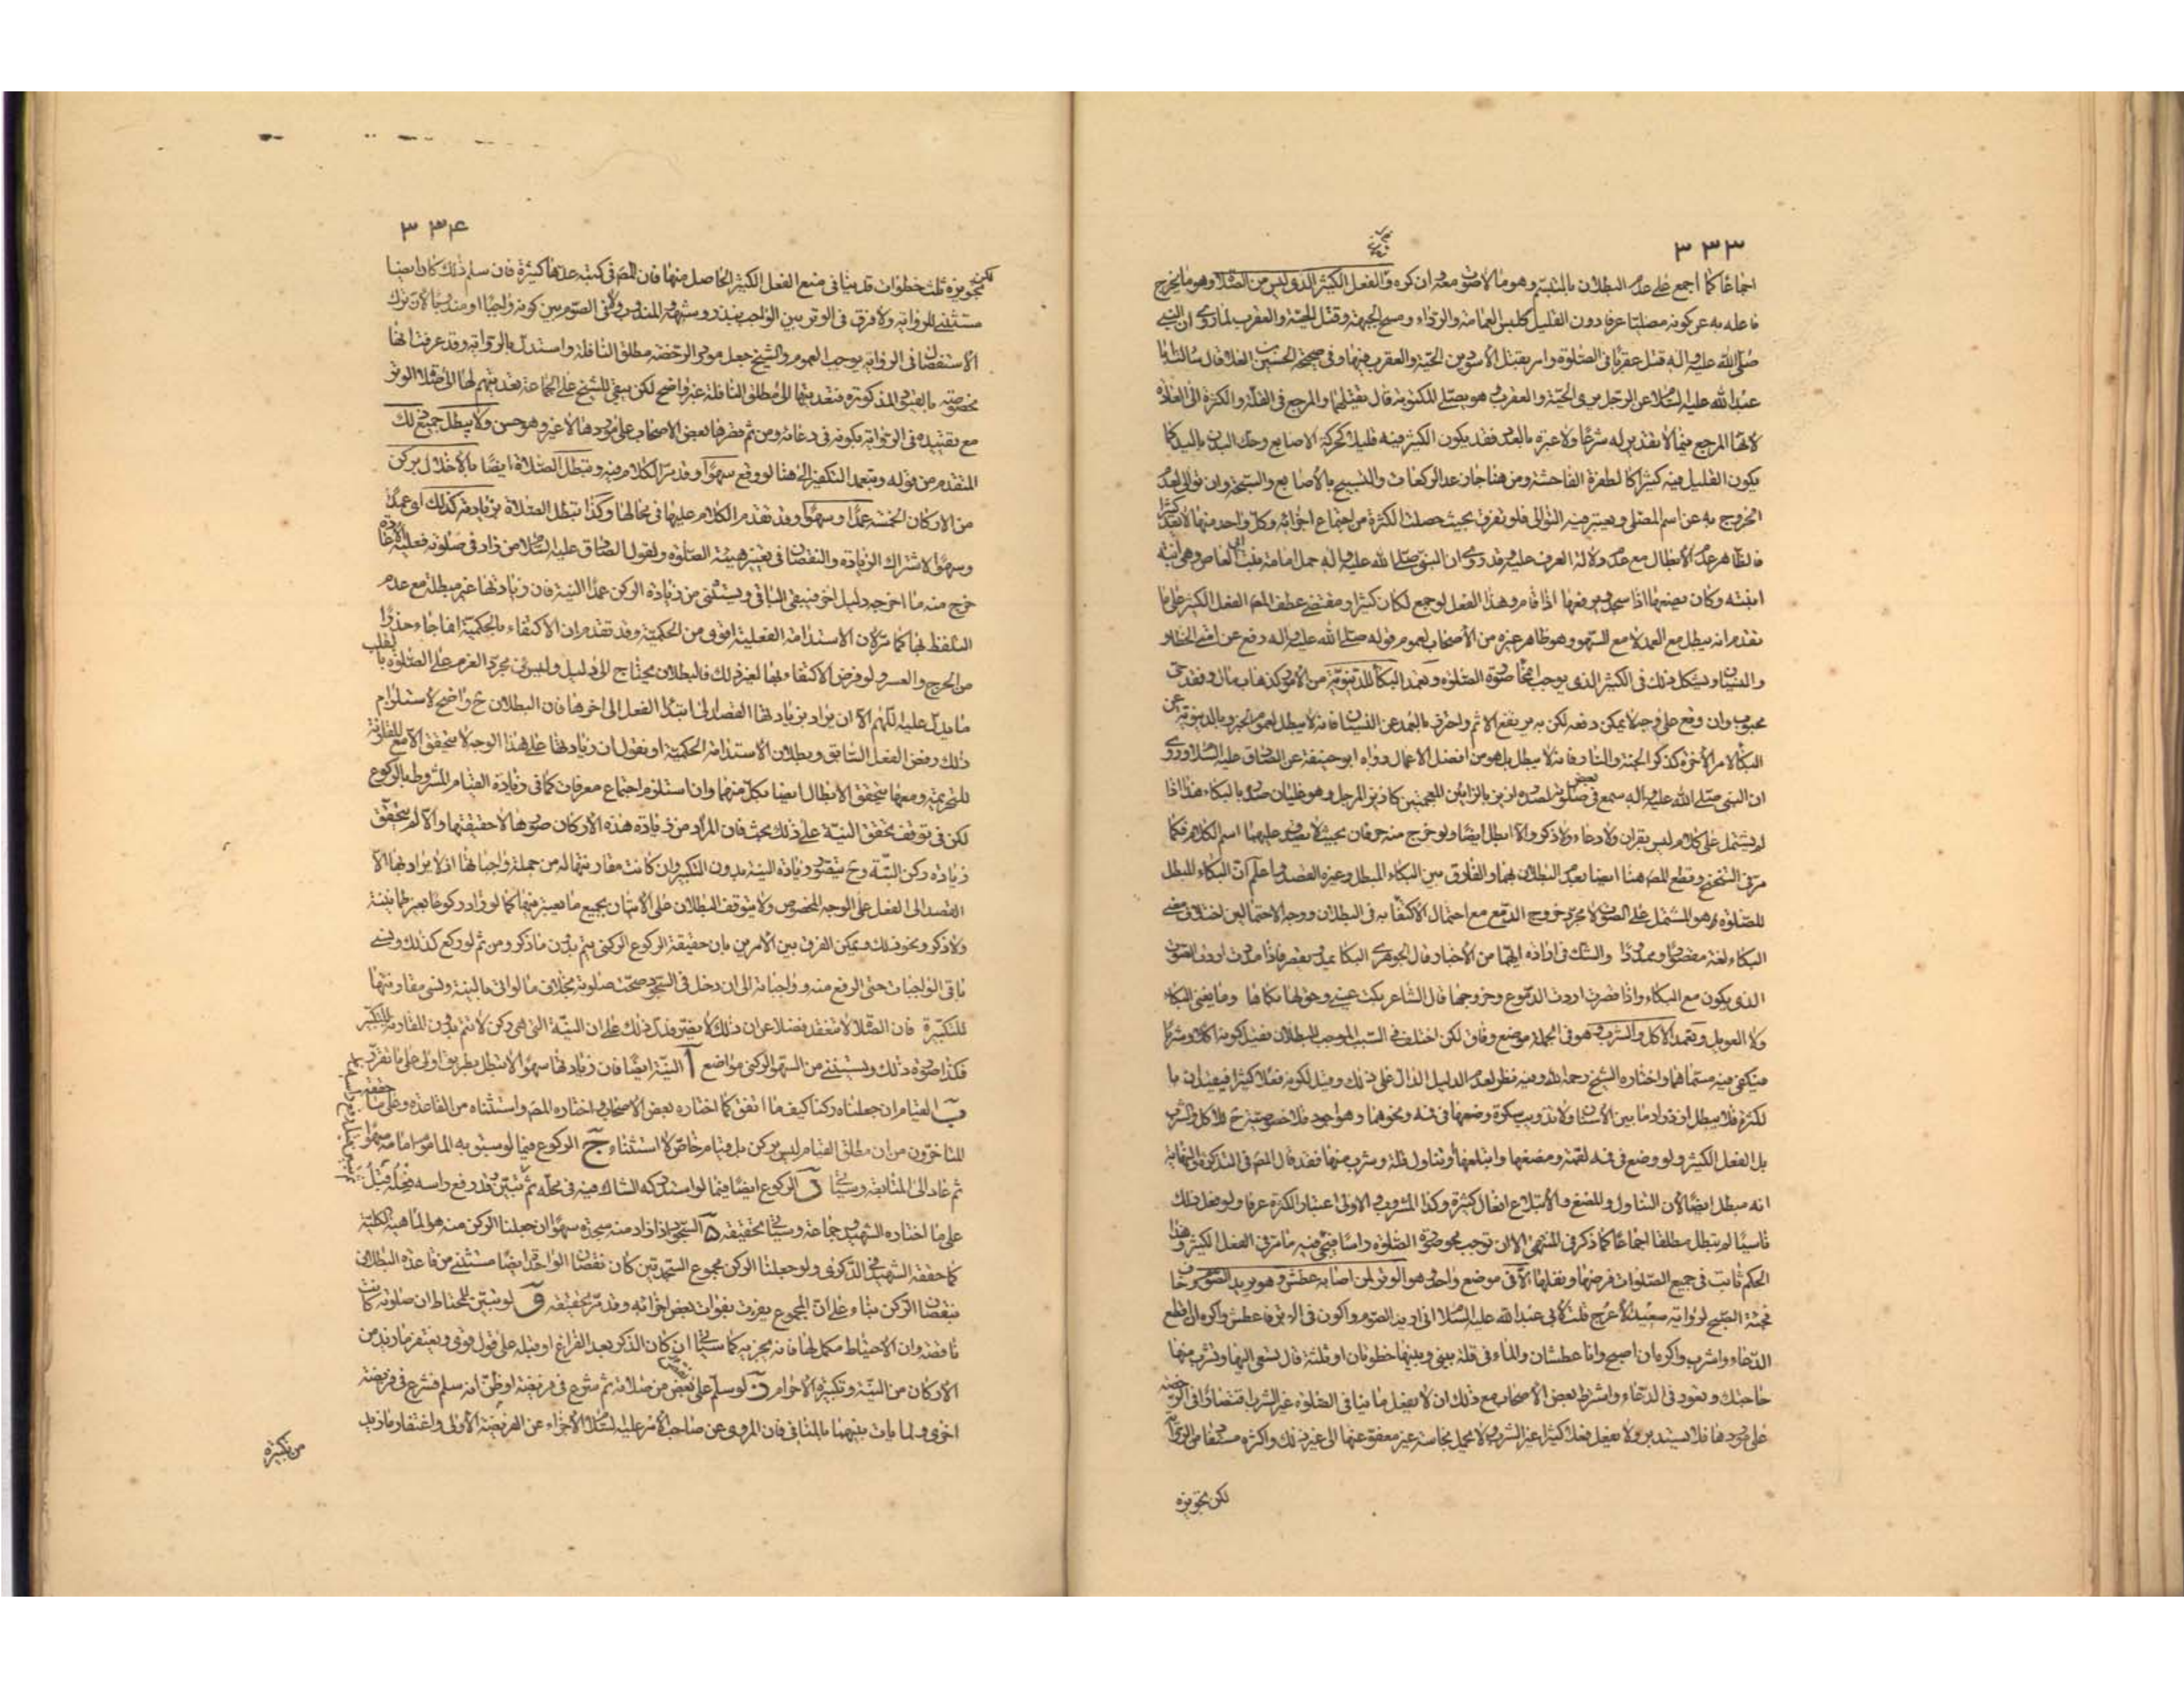 ٣٣٣
اجماعًا كما اجمع على عدم البطلان بالتبسّم وهو ما لا صوت معه ان كره والفعل الكثير الذي ليس من الصّلاة وهو ما يخرج
فاعله به عن كونه مصليًا عرفا دون القليل كلبس العمامة والرداء ومسح الجبهة وقتل الحيّة والعقرب لما روى ان النبي
صلّى الله عليه واله قتل عقربًا في الصّلوة وامر بقتل الأسودين الحيّة والعقرب فيها وفي صحيحة الحسين بن العلا قال سالت ابا
عبد الله عليه السّلام عن الرّجل يرى الحيّة والعقرب وهو يصلّي المكتوبة قال يقتلهما والمرجع في القلّة والكثرة الى العادة
لانّها المرجع فيما لا تقدير له شرعًا ولا عبرة بالعدد فقد يكون الكثير فيه قليلا كحركة الاصابع وحك البدن باليد كما
يكون القليل فيه كثيرا كالطفرة الفاحشة ومن هنا جاز عد الركعات والتسبيح بالأصابع والسبحة وان توالى لعدم
الخروج به عن اسم المصلّي ويعتبر فيه التوالى فلو تفرق بحيث حصلت الكثرة من اجتماع اجزائه وكل واحد منها لا يعد كثيرا
فالظاهر عدم الأبطال مع عدم دلالة العرف عليه وقد روى ان النبي صلّى الله عليه واله حمل امامة بنت ابي العاص وهي ابنة
ابنته وكان يضعها اذا سجد ويرفعها اذا قام وهذا الفعل لو جمع لكان كثيرا ومقتضى عطف المص الفعل الكثير على ما
تقدم انه يبطل مع العمد لا مع السّهو وهو ظاهر غيره من الأصحاب لعموم قوله صلّى الله عليه واله رفع عن امتي الخطاء
والنسيان ويشكل ذلك في الكثير الذي يوجب انمحا صورة الصّلوة وتعمد البكآ للدّنيويّة من الأمور كذهاب مال وفقد
محبوب وان وقع على وجه لا يمكن دفعه لكن به يرتفع الاثم واحترز بالعمد عن النّسيان فانه لا يبطل لعموم الخبر وبالدنيويّة عن
البكآ لامر الأخرة كذكر الجنة والنار فانه لا يبطل بل هو من افضل الاعمال ورواه ابو حنيفة عن الصّادق عليه السّلام وروى
ان النبي صلّى الله عليه واله سمع في بعض صلوته لصدره ازيز بالزايين المعجمتين كازيز المرجل وهو غليان صدره بالبكاء هذا اذا
لم يشتمل على كلام ليس بقران ولا دعاء ولا ذكر والا ابطل ايضا ولو خرج منه حرفان بحيث لا يصدق عليهما اسم الكلام فكما
مرّ في التنحنح وقطع المص هنا ايضا بعدم البطلان بهما والفارق بين البكاء المبطل وغيره القصد واعلم ان البكاء المبطل
للصّلوة هو المشتمل على الصّوت لا مجرّد خروج الدّمع مع احتمال الاكتفآ به في البطلان ووجه الاحتمالين اختلاف معنى
البكاء لغة مقصورًا وممدودًا والشك في ارادة ايّهما من الأخبار قال الجوهري البكا يمد ويقصر فاذا مددت اردت الصّوت
الذي يكون مع البكاء واذا قصرت اردت الدّموع وخروجها قال الشاعر بكت عيني وحقّ لها بكاها وما يغنى البكاء
ولا العويل وتعمد الاكل والشرب وهو في الجملة موضع وفاق لكن اختلف في السّبب الموجب للبطلان فقيل كونه اكلا وشربا
فيكفي فيه مسمّاهما واختاره الشيخ رحمه الله وفيه نظر لعدم الدليل الدّال على ذلك وقيل لكونه فعلا كثيرا فيقيدان بالـ
ـكثرة فلا يبطل ازدراد ما بين الأسنان ولا تذويب سكرة وضعها في فيه ونحوهما وهو اجود فلا خصوصيّة ح للأكل والشرب
بل الفعل الكثير ولو وضع في فيه لقمة ومضغها وابتلعها او تناول قلة وشرب منها فقد قال المص في التذكرة والنهاية
انه مبطل ايضًا لان التناول والمضغ والأبتلاع افعال كثيرة وكذا المشروب والاولى اعتبار الكثرة عرفا ولو فعل ذلك
ناسيًا لم يبطل مطلقا اجماعًا كما ذكر في المنتهى الا ان توجب محو صورة الصّلوة راسا فيجئ فيه ما مر في الفعل الكثير وهذا
الحكم ثابت في جميع الصّلوات فرضها ونفلها الا في موضع واحد وهو الوتر لمن اصابه عطش وهو يريد الصّوم وخاف
فجئة الصّبح لرواية سعيد الأعرج قلت لابي عبد الله عليه السّلام اني اريد الصّوم واكون في الوتر فاعطش واكره ان اقطع
الدّعاء واشرب واكره ان اصبح وانا عطشان والماء في قلة بيني وبينها خطوتان او ثلثة قال تسعى اليها وتشرب منها
حاجتك وتعود في الدّعاء واشترط بعض الأصحاب مع ذلك ان لا يفعل ما ينافي الصّلوة غير الشرب اقتصارًا في الرّخصة
على موردها فلا يستدبر ولا يفعل فعلا كثيرا غير الشرب ولا يحمل نجاسة غير معفو عنها الى غير ذلك واكثره مستفاد من الرواية
لكن تجويزه
٣٣٤
لكن تجويزه ثلث خطوات قد ينافي منع الفعل الكثير الحاصل منها فان المص في كتبه عدّها كثيرة فان سلم ذلك كان ايضا
مستثنى للرواية ولا فرق في الوتر بين الواجب بنذر وشبهه والمندوب ولا في الصّوم بين كونه واجبا او مندوبا لان ترك
الأستفصال في الرواية يوجب العموم والشيخ جعل مورد الرّخصة مطلق النافلة واستدل بالرواية وقد عرفت انها
مخصوصة بالقيود المذكورة فتعديتها الى مطلق النافلة غير واضح لكن يبقى للشيخ على الجماعة تعديتهم لها الى صلاة الوتر
مع تقييده في الرّواية بكونه في دعائه ومن ثم قصرها بعض الاصحاب على موردها لا غير وهو حسن ولا يبطل جميع ذلك
المتقدم من قوله وبتعمد التكفير الى هنا لو وقع سهوًا وقد مرّ الكلام فيه وتبطل الصّلاة ايضًا بالأخلال بركن
من الاركان الخمسة عمدًا وسهوًا وقد تقدم الكلام عليها في محالها وكذا تبطل الصّلاة بزيادته كذلك اى عمدًا
وسهوًا لاشتراك الزيادة والنقصان في تغيير هيئة الصّلوة ولقول الصّادق عليه السّلام من زاد في صلوته فعليه الأعادة
خرج منه ما اخرجه دليل اخر فيبقى الباقي ويستثنى من زيادة الركن عمدًا النيّة فان زيادتها غير مبطلة مع عدم
التلفظ بها كما مرّ لان الأستدامة الفعلية اقوى من الحكميّة وقد تقدم ان الاكتفاء بالحكميّة انّما جاء حذرًا
من الحرج والعسر ولو فرض الاكتفاء بها لغير ذلك فالبطلان يحتاج الى دليل وليس في مجرّد العزم على الصّلوة بالقلب
ما يدل عليه اللّهم الا ان يراد بزيادتها القصد الى ابتداء الفعل الى اخرها فان البطلان ح واضح لاستلزام
ذلك رفض الفعل السّابق وبطلان الأستدامة الحكميّة او نقول ان زيادتها على هذا الوجه لا يتحقق الا مع المقارنة
للتحريمة ومعها يتحقق الأبطال ايضا بكل منهما وان استلزم اجتماع معرفات كما في زيادة القيام المشروط بالركوع
لكن في توقف تحقق النيّة على ذلك بحث فان المراد من زيادة هذه الأركان صورها لا حقيقتها والا لم يتحقق
زيادة ركن البتّة وح يتصور زيادة النيّة بدون التكبير وان كانت مقارنتها له من جملة واجباتها اذ لا يراد بها الا
القصد الى الفعل على الوجه المخصوص ولا يتوقف البطلان على الأتيان بجميع ما يعتبر فيها كما لو زاد ركوعًا بغير طمانينة
ولا ذكر ونحو ذلك ويمكن الفرق بين الأمرين بان حقيقة الركوع الركني يتم بدون ما ذكر ومن ثم لو ركع كذلك ونسي
باقي الواجبات حتى الرفع منه وواجباته الى ان دخل في السجود صحّت صلوته بخلاف ما لو اتى بالنيّة ونسي مقارنتها
للتكبيرة فان الصّلاة لا تنعقد فضلا عن ان ذلك لا يضر فدل ذلك على ان النيّة التي هي ركن لا يتم بدون المقارنة للتكبير
فكذا صورة ذلك ويستثنى من السهو الركني مواضع آ النيّة ايضًا فان زيادتها سهوًا لا تبطل بطريق اولى على ما تقرّر
ب القيام ان جعلناه ركنا كيف ما اتفق كما اختاره بعض الاصحاب واختاره المص واستثناه من القاعدة وعلى ما حققه
المتاخرون من ان مطلق القيام ليس بركن بل قيام خاصّ لا استثناء ج الركوع فيما لو سبق به الماموم امامه سهوا
ثم عاد الى المتابعة وسياتي د الركوع ايضًا فيما لو استدركه الشاك فيه في محلّه ثم تبيّن قبل رفع راسه فعله قبل
على ما اختاره الشهيد وجماعة وسياتي تحقيقه ه السّجود اذا زاد منه سجدة سهوًا ان جعلنا الركن منه هو الماهية الكلية
كما حققه الشهيد في الذكرى ولو جعلنا الركن مجموع السّجدتين كان نقصان الواحدة ايضًا مستثنى من قاعدة البطلان
بنقصان الركن بناء على ان المجموع يفوت بفوات بعض اجزائه وقد مرّ تحقيقه و لو تبيّن للمحتاط ان صلوته كانت
ناقصة وان الاحتياط مكمل لها فانه مجز به كما سياتي ان كان الذكر بعد الفراغ او قبله على قول قوي ويغتفر ما زيد من
الأركان من النيّة وتكبيرة الأحرام ز لو سلّم على نقص من صلاته ثم شرع في فريضة او ظن انه سلم فشرع في فريضة
اخرى ولما يات بينهما بالمنافي فان المروى عن صاحب الأمر عليه السّلام الأجزاء عن الفريضة الأولى واغتفار ما زيد
من تكبيرة